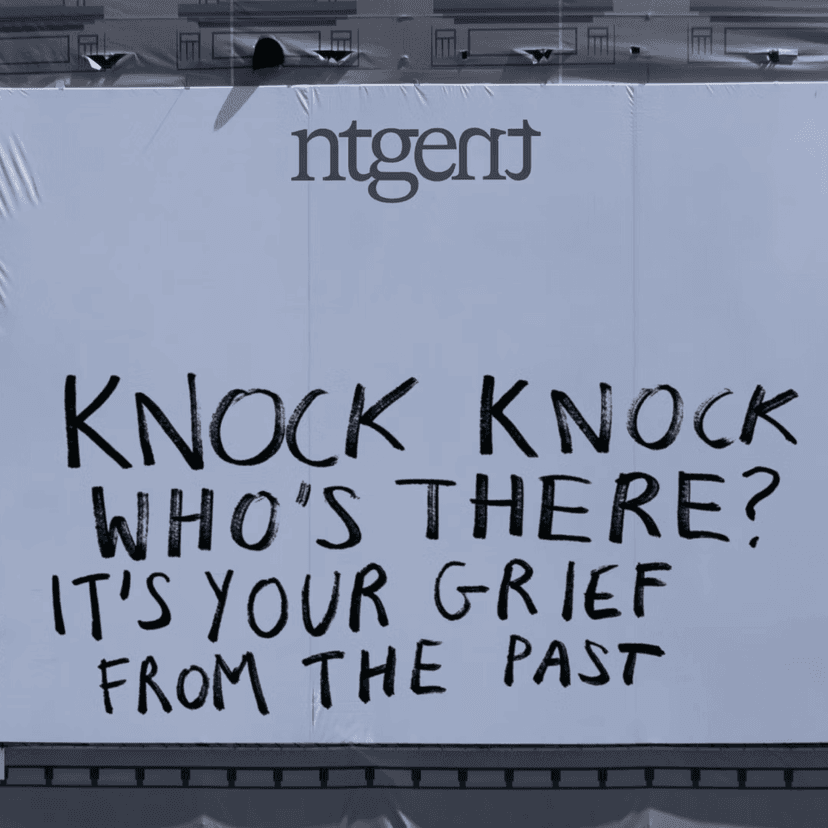 ntgent
KNOCK KNOCK
WHO'S THERE?
IT'S YOUR GRIEF
FROM THE PAST